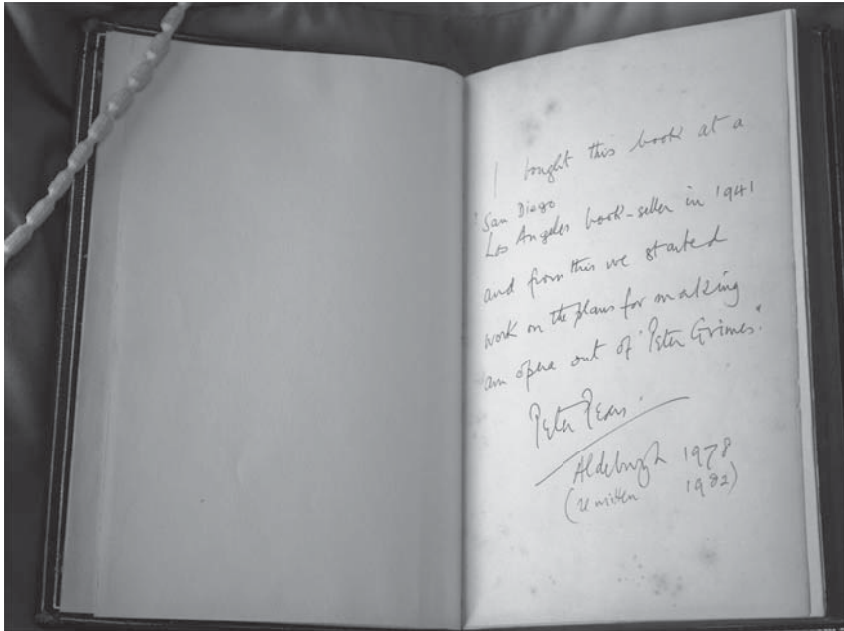 I bought this book at a
'San Diego
Los Angeles book-seller in 1941
and from this we started
work on the plans for making
an opera out of "Peter Grimes".
Peter Pears.
Aldeburgh 1978
(rewritten 1982)